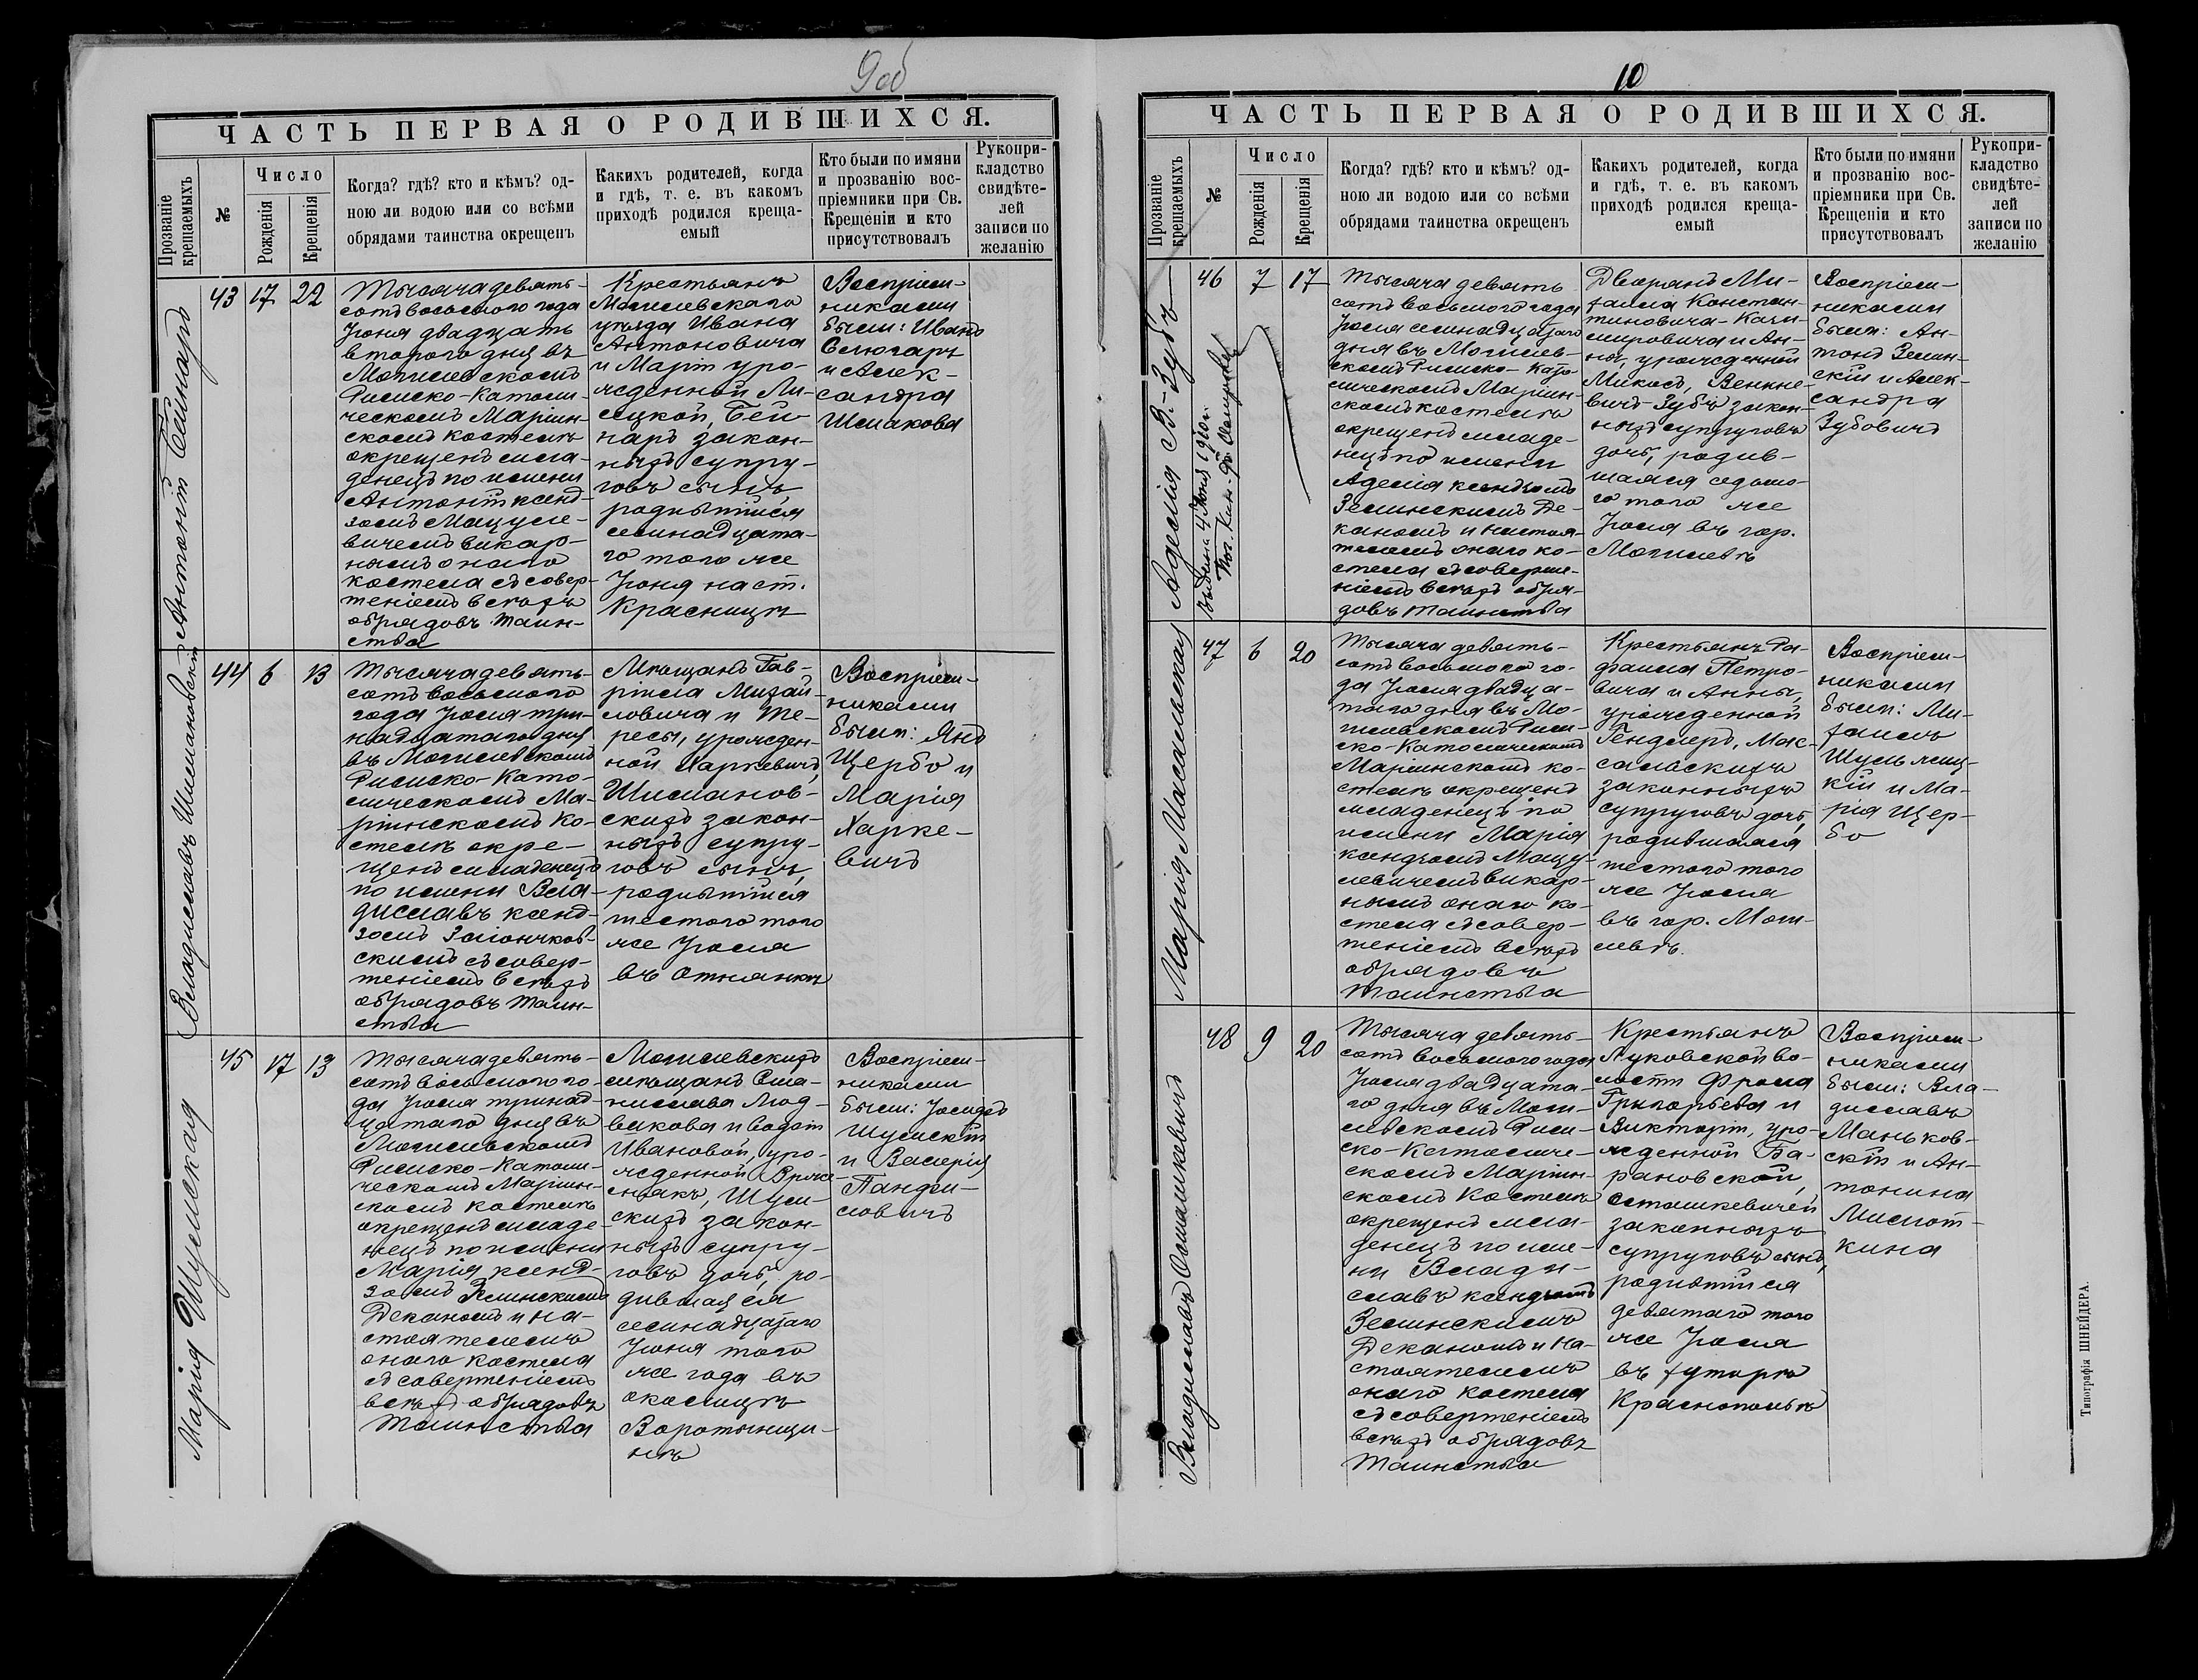 9 об
ЧАСТЬ ПЕРВАЯ О РОДИВШИХСЯ.
Прозваніе крещаемыхъ
№
Число
Рожденія
Крещенія
Когда? гдѣ? кто и кѣмъ? од-
ною ли водою или со всѣми
обрядами таинства окрещенъ
Какихъ родителей, когда
и гдѣ, т. е. въ какомъ
приходѣ родился креща-
емый
Кто были по имяни
и прозванію вос-
пріемники при Св.
Крещеніи и кто
присутствовалъ
Рукопри-
кладство
свидѣте-
лей
записи по
желанію
Антоній Бейнаръ
43
17
22
Тысяча девять-
сотъ восьмого года
Іюня двадцать
второго дня въ
Могилевскомъ
Римско-Католи-
ческомъ Маріин-
скомъ костелѣ
окрещенъ мла-
денецъ по имени
Антоній ксенд-
зомъ Мацуле-
вичемъ викар-
нымъ онаго
костела съ совер-
шеніемъ всѣхъ
обрядовъ таин-
ства
Крестьянъ
Могилевскаго
уѣзда Ивана
Антоновича
и Маріи уро-
жденной Ли-
сецкой, Бей-
наръ закон-
ныхъ супру-
говъ сынъ,
родившійся
семнадцата-
го того же
Іюня на ст.
Красницѣ
Воспріем-
никами
были: Иванъ
Селюгаръ
и Алек-
сандра
Шмакова
Владиславъ Шимановскій
44
6
13
Тысяча девять-
сотъ восьмого
года Іюля три-
надцатаго дня
въ Могилевскомъ
Римско-Като-
лическомъ Ма-
ріинскомъ ко-
стелѣ окре-
щенъ младенецъ
по имени Вла-
диславъ ксенд-
зомъ Заіончков-
скимъ съ совер-
шеніемъ всѣхъ
обрядовъ таин-
ства
Мѣщанъ Гав-
ріила Михай-
ловича и Те-
ресы, урожден-
ной Харкевичъ,
Шиманов-
скихъ закон-
ныхъ супру-
говъ сынъ,
родившійся
шестого того
же Іюля
въ Отнянкѣ
Воспріем-
никами
были: Янъ
Щербо и
Марія
Харке-
вичъ
Марія Шумская
45
17
13
Тысяча девять-
сотъ восьмого го-
да Іюля тринад-
цатаго дня въ
Могилевскомъ
Римско-Католи-
ческомъ Маріин-
скомъ костелѣ
окрещенъ младе-
нецъ по имени
Марія ксенд-
зомъ Зелинскимъ
Деканомъ и на-
стоятелемъ
онаго костела
съ совершеніемъ
всѣхъ обрядовъ
таинства
Могилевскихъ
мѣщанъ Ста-
нислава Люд-
викова и
Ивановой, уро-
жденной
Шум-
скихъ закон-
ныхъ супру-
говъ дочь, ро-
дившаяся
семнадцатаго
Іюня того
же года въ
околицѣ
Воротынщи-
нѣ
Воспріем-
никами
были: Іосифъ
Шумскій
и Валерія
Панфи-
ловичъ
10
ЧАСТЬ ПЕРВАЯ О РОДИВШИХСЯ.
Прозваніе крещаемыхъ
№
Число
Рожденія
Крещенія
Когда? гдѣ? кто и кѣмъ? од-
ною ли водою или со всѣми
обрядами таинства окрещенъ
Какихъ родителей, когда
и гдѣ, т. е. въ какомъ
приходѣ родился креща-
емый
Кто были по имяни
и прозванію вос-
пріемники при Св.
Крещеніи и кто
присутствовалъ
Рукопри-
кладство
свидѣте-
лей
записи по
желанію
Аделія В.-Зубъ
46
7
17
Тысяча девять-
сотъ восьмого года
Іюля семнадцатаго
дня въ Могилев-
скомъ Римско-Като-
лическомъ Маріин-
скомъ костелѣ
окрещенъ младе-
нецъ по имени
Аделія ксендзомъ
Зелинскимъ Де-
каномъ и настоя-
телемъ онаго ко-
стела съ соверше-
ніемъ всѣхъ обря-
довъ таинства
Дворянъ Ми-
хаила Констан-
тиновича-Кази-
мировича и Ан-
ны, урожденной
Микосъ, Венкне-
вичъ-Зубъ закон-
ныхъ супруговъ
дочь, родив-
шаяся седьмо-
го того же
Іюля въ гор.
Могилевѣ
Воспріем-
никами
были: Ан-
тонъ Зелин-
скій и Алек-
сандра
Зубовичъ
Марія Масальская
47
6
20
Тысяча девять-
сотъ восьмого го-
да Іюля двадца-
таго дня въ Мо-
гилевскомъ Рим-
ско-Католическомъ
Маріинскомъ ко-
стелѣ окрещенъ
младенецъ по
имени Марія
ксендзомъ Мацу-
левичемъ викар-
нымъ онаго ко-
стела съ совер-
шеніемъ всѣхъ
обрядовъ
таинства
Крестьянъ Ра-
фаила Петро-
вича и Анны,
урожденной
Гендлеръ, Мас-
сальскихъ
законныхъ
супруговъ дочь,
родившаяся
шестого того
же Іюля
въ гор. Моги-
левѣ.
Воспріем-
никами
были: Ми-
хаилъ
Шульжиц-
кій и Ма-
рія Щер-
бо
Владиславъ Осташкевичъ
48
9
20
Тысяча девять-
сотъ восьмого года
Іюля двадцата-
го дня въ Моги-
левскомъ Рим-
ско-Католиче-
скомъ Маріин-
скомъ Костелѣ
окрещенъ мла-
денецъ по име-
ни Влади-
славъ ксендзомъ
Зелинскимъ
Деканомъ и на-
стоятелемъ
онаго костела
съ совершеніемъ
всѣхъ обрядовъ
таинства
Крестьянъ
Луковской во-
лости Фрола
Григорьева и
Викторіи, уро-
жденной Ба-
рановской,
Осташкевичей
законныхъ
супруговъ сынъ,
родившійся
девятаго того
же Іюля
въ хуторѣ
Краснопольѣ
Воспріем-
никами
были: Вла-
диславъ
Маньков-
скій и Ан-
тонина
Милот-
кина
Типографія ШНЕЙДЕРА.